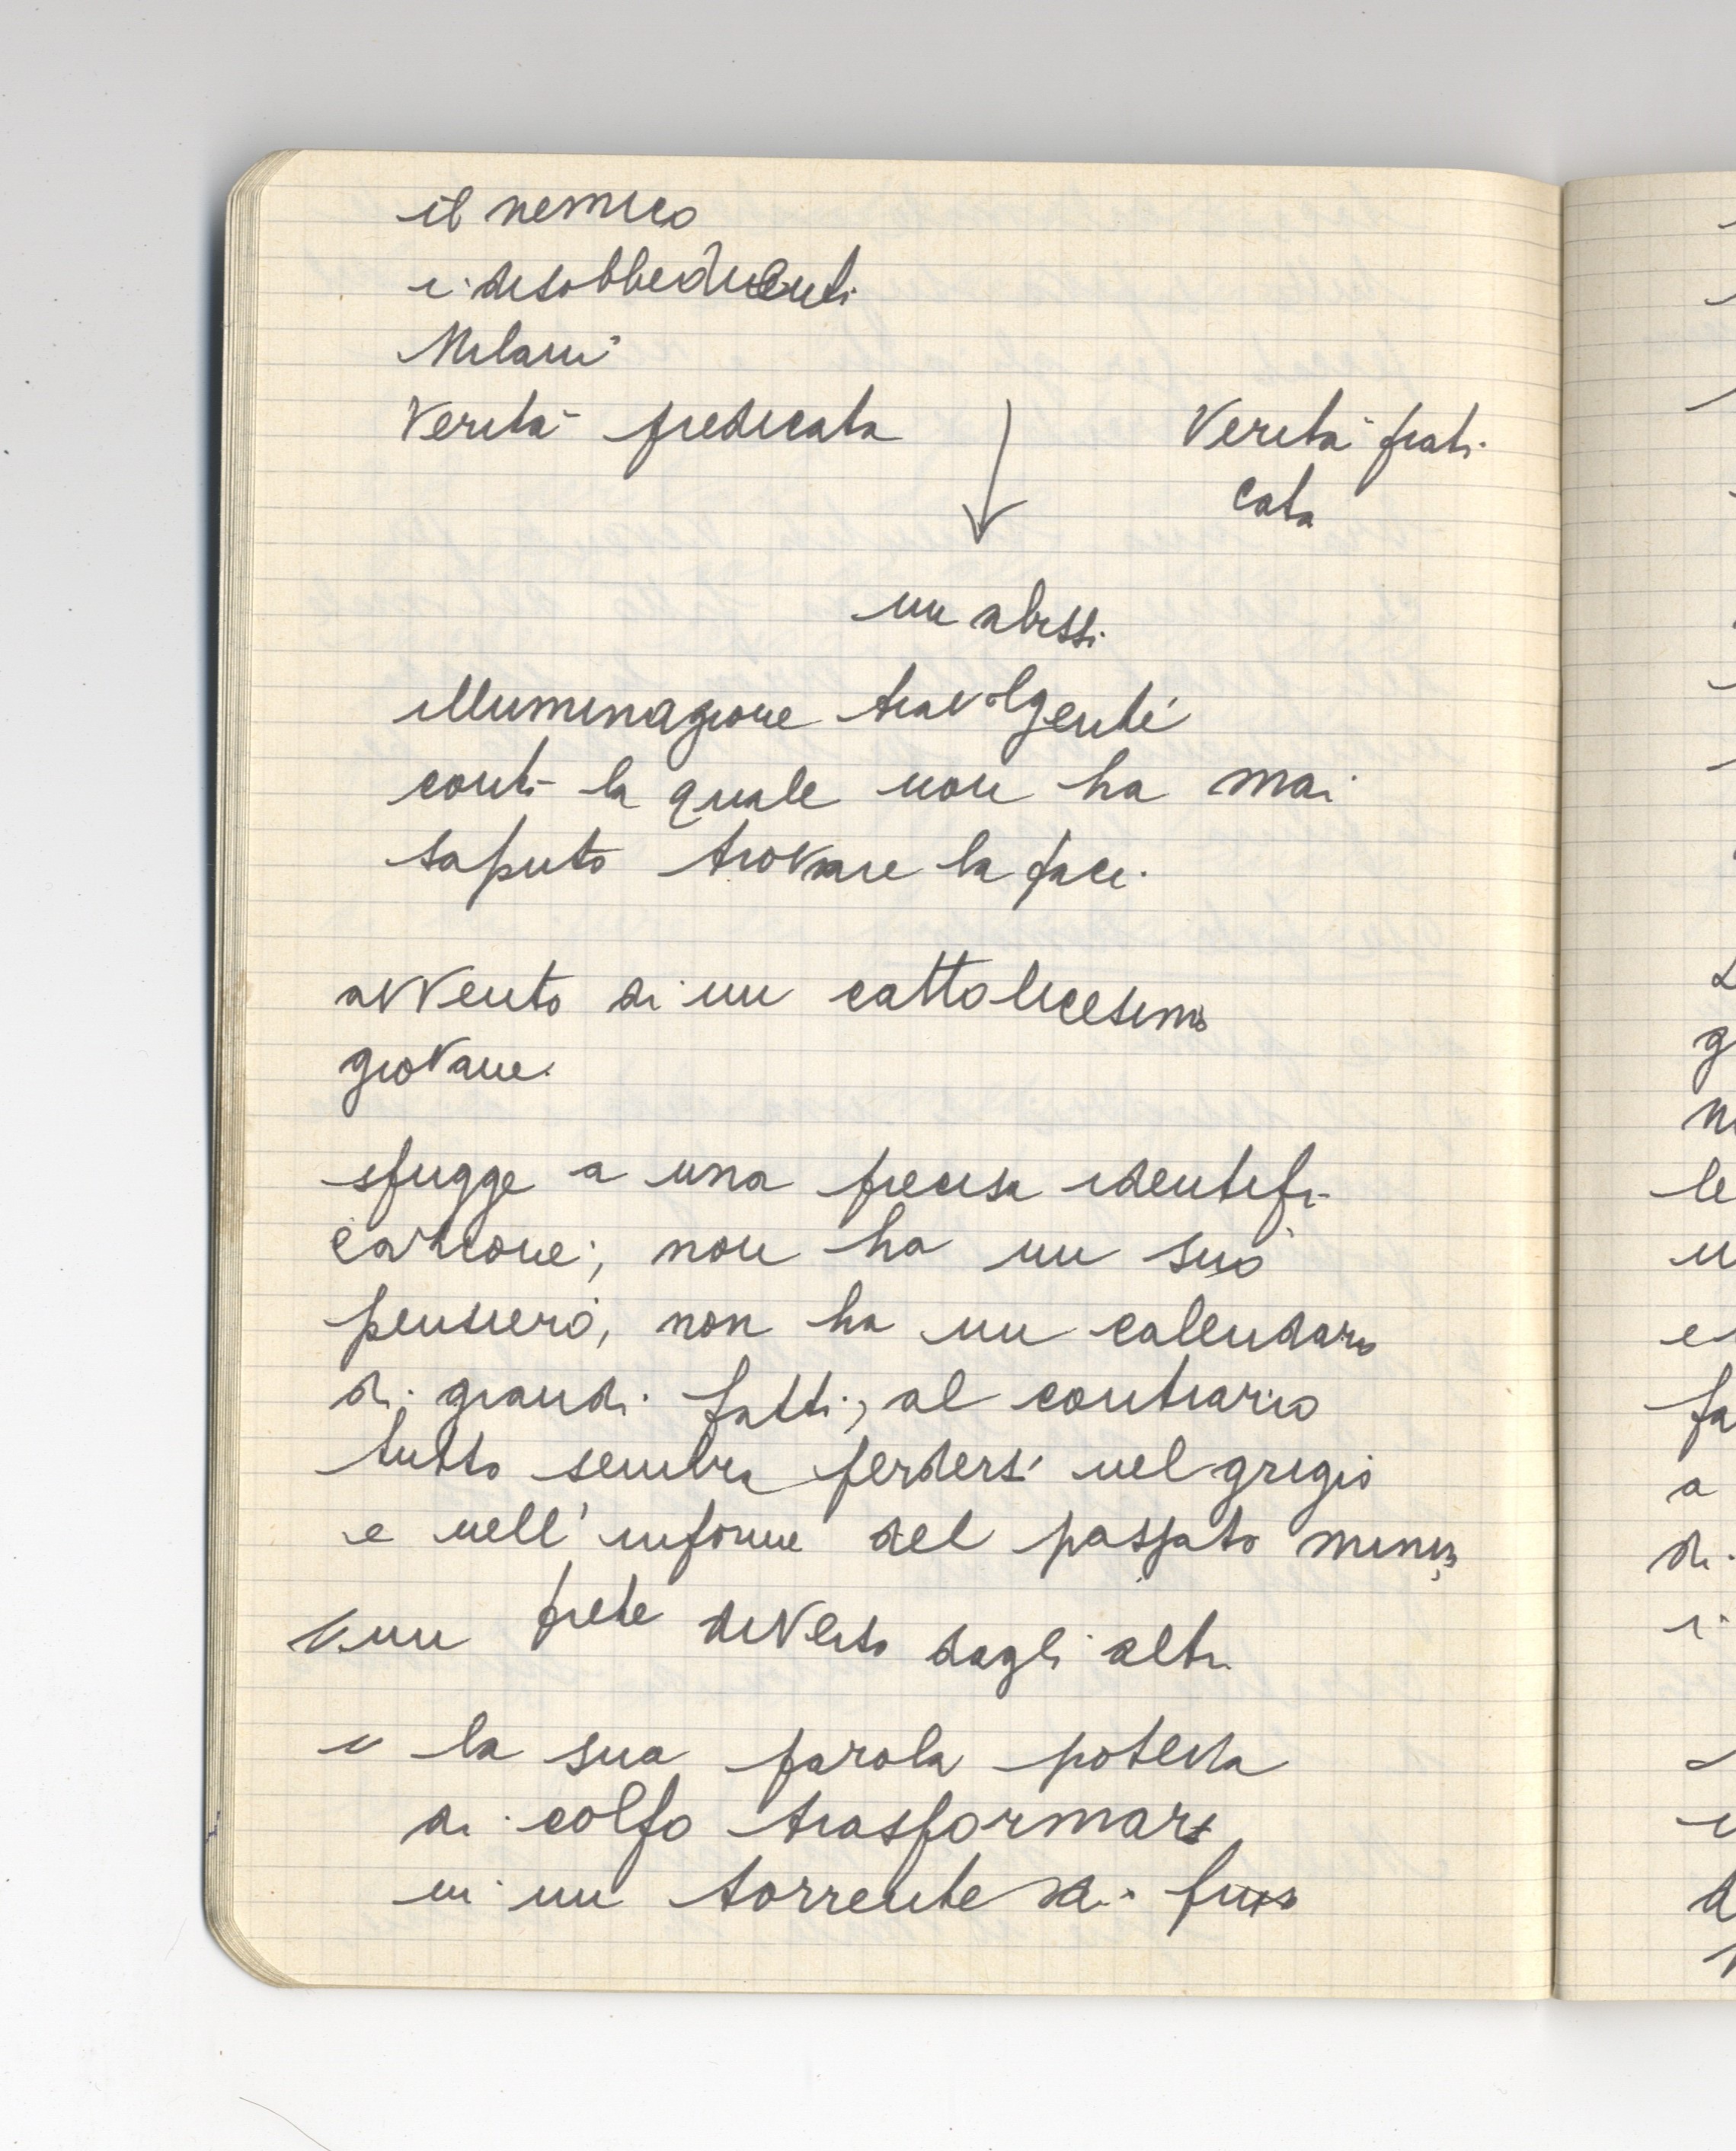 il nemico
i disobbedienti
Milani
Verità predicata
Verità prati
cata
un abisso
illuminazione travolgente
conti la quale non ha mai
saputo trovare la pace.
avvento di un cattolicesimo
giovane.
sfugge a una precisa identifi-
cazione; non ha un suo
pensiero, non ha un calendario
di grandi fatti, al contrario
tutto sembra perdersi nel grigio
e nell'informe del passato
un prete diverso dagli altri
e la sua parola poteva
di colpo trasformarsi
in un torrente di